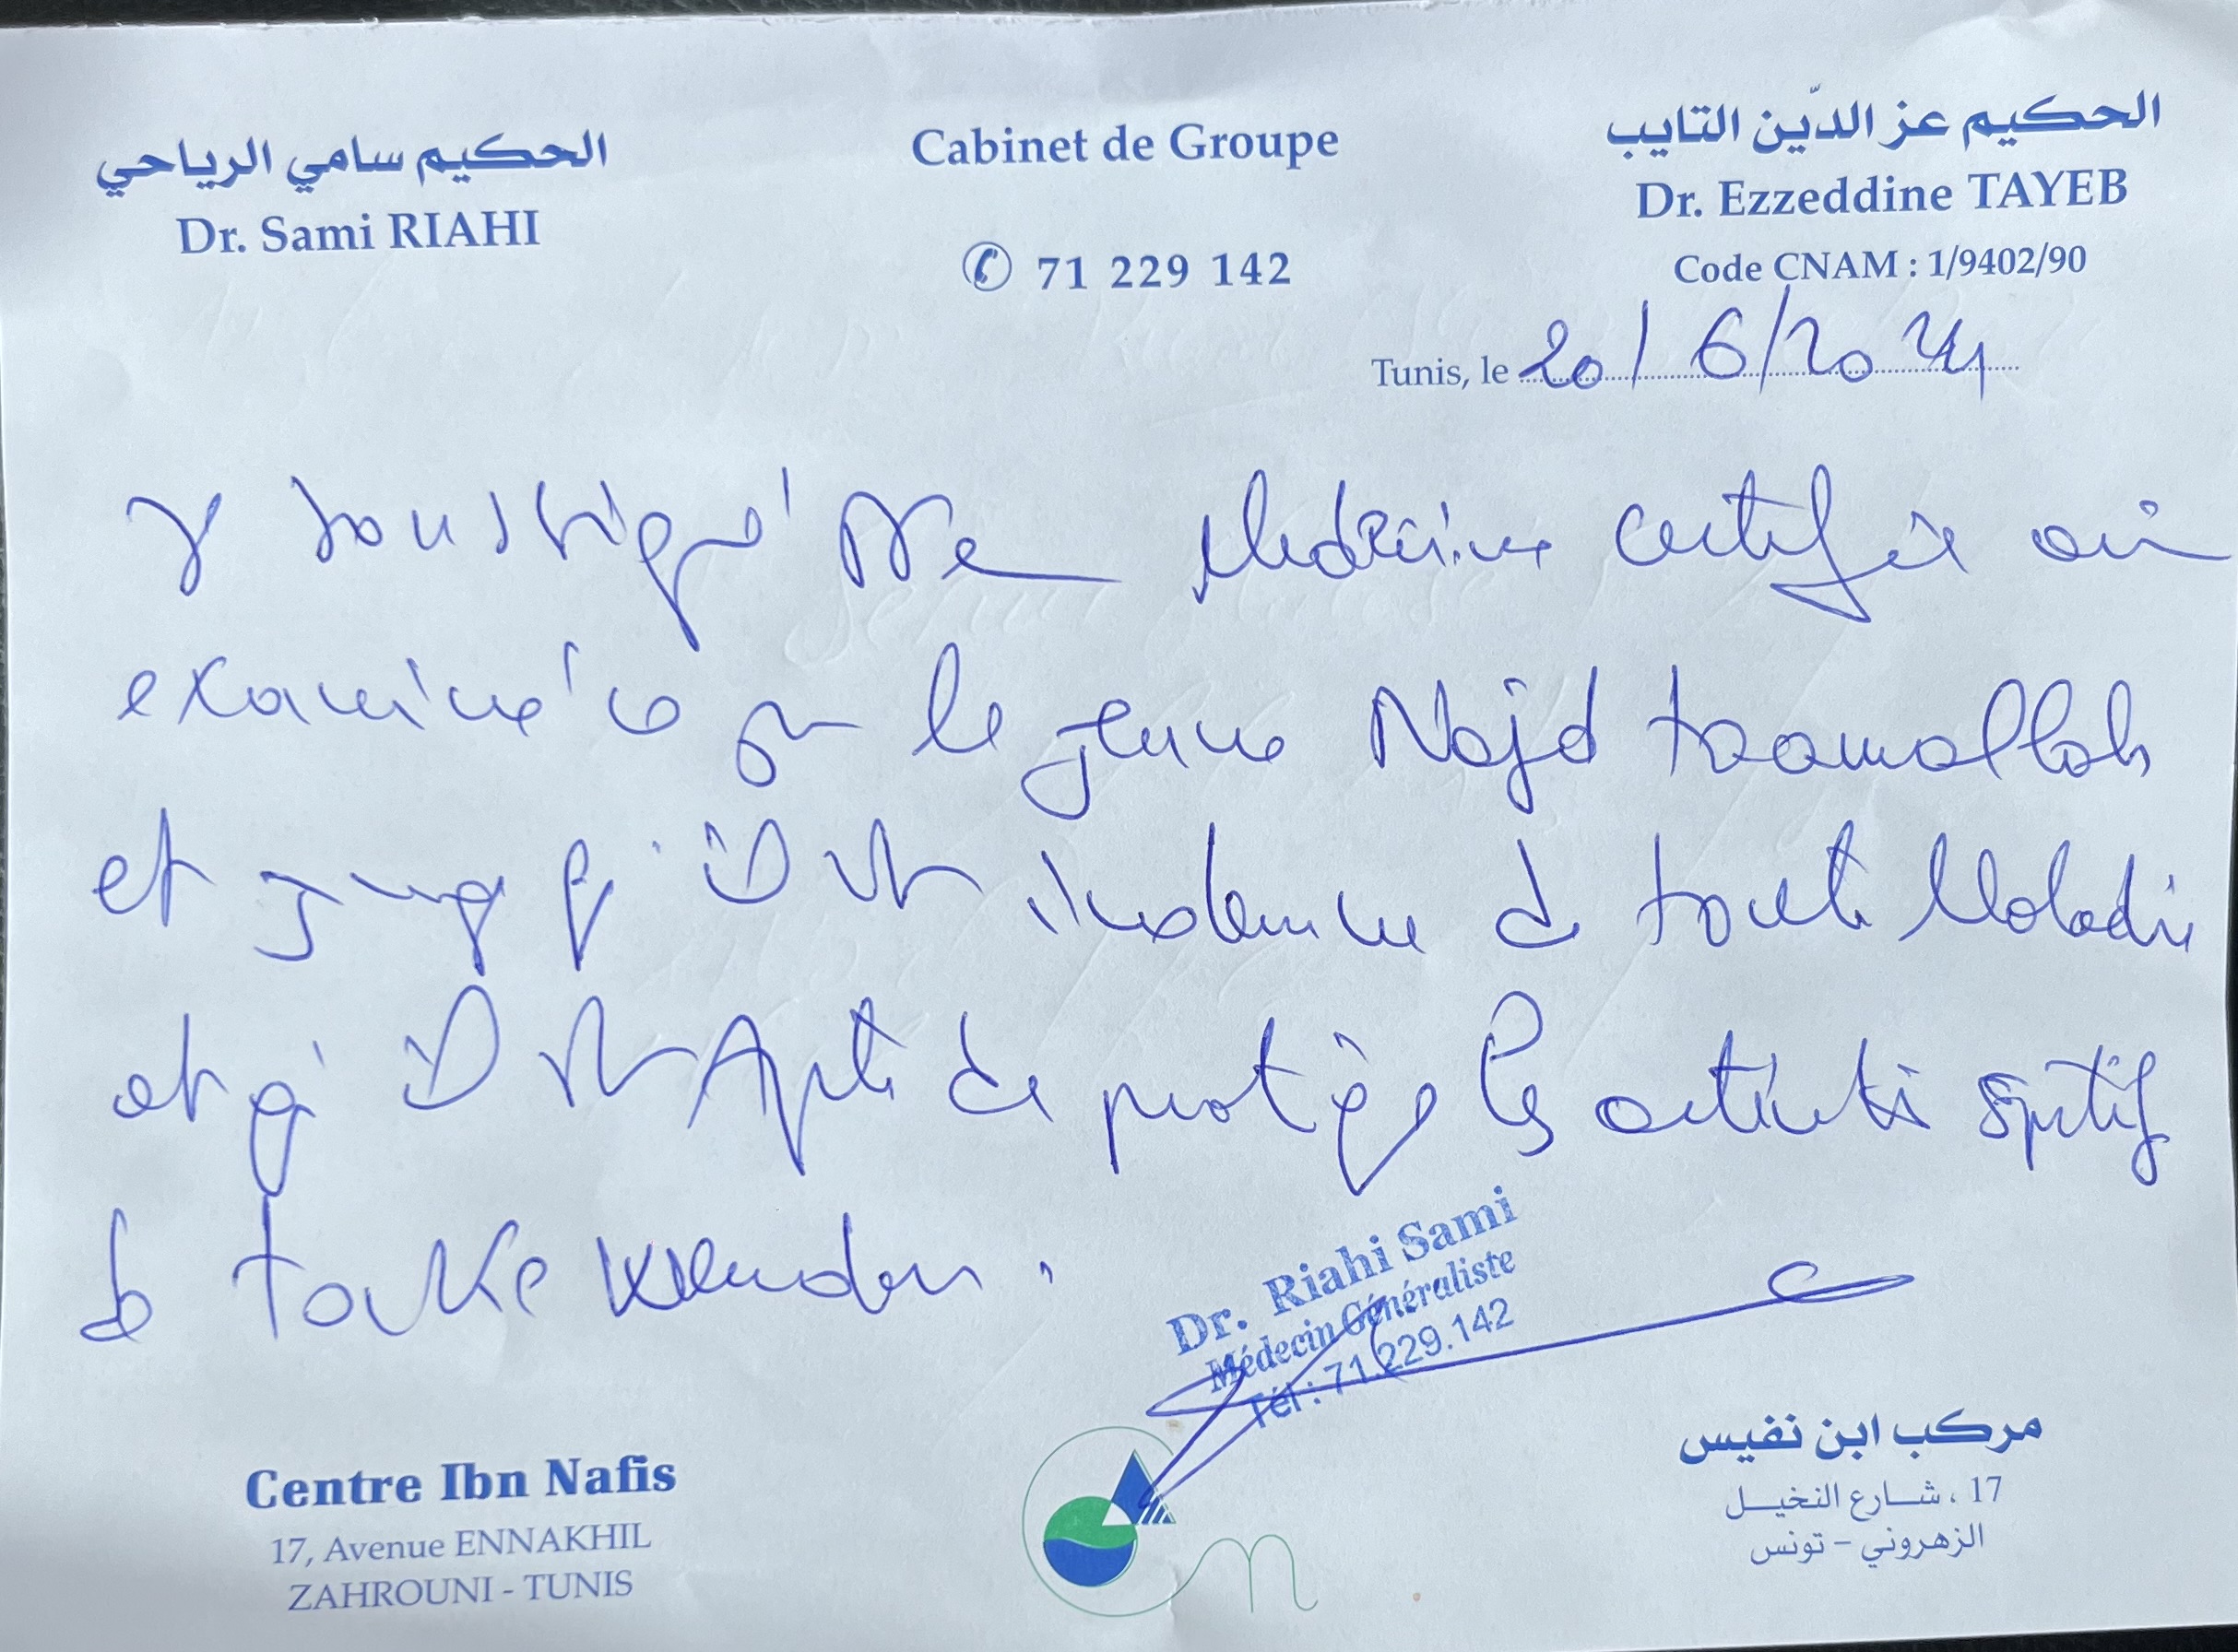 الحكيم سامي الرياحي
Dr. Sami RIAHI
Cabinet de Groupe
✆ 71 229 142
الحكيم عز الدّين التايب
Dr. Ezzeddine TAYEB
Code CNAM : 1/9402/90
Tunis, le 20/6/2024
soussigné Dr Médecine certifie avoir
examiné ce jour le jeune Najd taamallah
et juge qu'il est indemne de toute Maladie
et qu'il est Apte de protéger les activités sportif
de
Dr. Riahi Sami
Médecin Généraliste
Tél : 71.229.142
Centre Ibn Nafis
17, Avenue ENNAKHIL
ZAHROUNI - TUNIS
مركب ابن نفيس
17 ، شارع النخيل
الزهروني - تونس